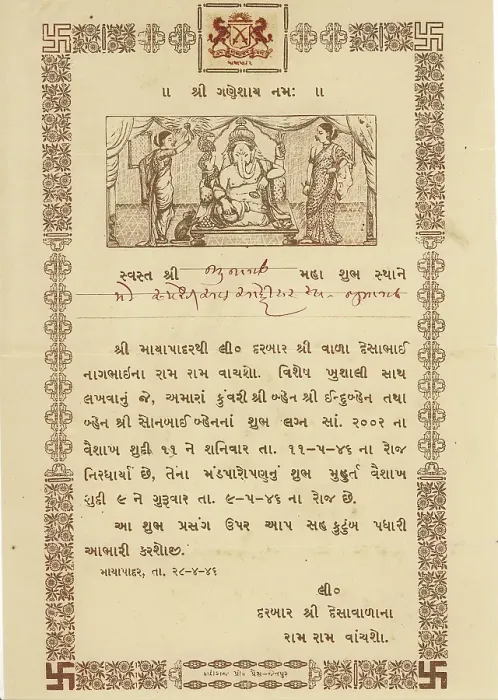 માયાપાદર
॥ શ્રી ગણેશાય નમઃ ॥
સ્વસ્ત શ્રી મહા શુભ સ્થાને
શ્રી માયાપાદરથી લી૦ દરબાર શ્રી વાળા દેસાભાઈ
નાગભાઇના રામ રામ વાચશો. વિશેષ ખુશાલી સાથ
લખવાનું જે, અમારાં કુંવરી શ્રી બ્હેન શ્રી ઈન્દુબ્હેન તથા
બ્હેન શ્રી સોનબાઈ બ્હેનનાં શુભ લગ્ન સાં. ૨૦૦૨ ના
વૈશાખ શુદી ૧૧ ને શનિવાર તા. ૧૧-૫-૪૬ ના રોજ
નિરધાર્યા છે, તેના મંડપારોપણનું શુભ મુહુર્ત વૈશાખ
શુદી ૯ ને ગુરૂવાર તા. ૯-૫-૪૬ ના રોજ છે.
આ શુભ પ્રસંગ ઉપર આપ સહ કુટુંબ પધારી
આભારી કરશોજી.
માયાપાદર, તા. ૨૮-૪-૪૬
લી૦
દરબાર શ્રી દેસાવાળાના
રામ રામ વાંચશો.